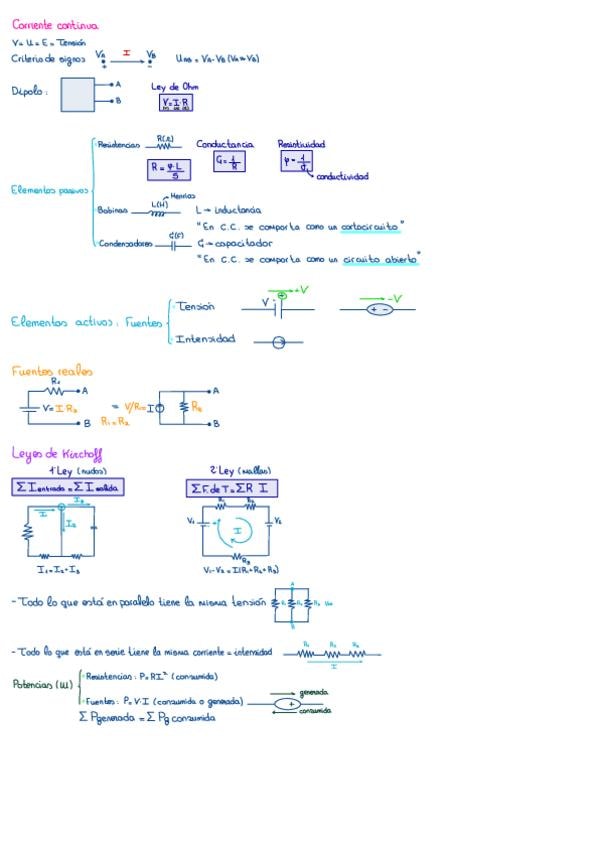 Corriente continua
V = U = E = Tensión
Criterio de signos VA + I VB - UAB = VA - VB (VA > VB)
Dipolo: A B
Ley de Ohm
V = I·R
Elementos pasivos
Resistencias R(Ω) Conductancia Resistividad
R = φ·L/S G = 1/R φ = 1/σ
conductividad
Henrios
Bobinas L(H) L → inductancia
"En C.C. se comporta como un cortocircuito"
Condensadores C(F) C → capacitador
"En C.C. se comporta como un circuito abierto"
Elementos activos: Fuentes
Tensión V + +V + - -V
Intensidad
Fuentes reales
A V = I B = V/R = I A B
Leyes de Kirchoff
1ª Ley (nudos) 2ª Ley (mallas)
ΣI entrada = ΣI salida ΣF. de T = ΣR I
I I2 I3 V1 V2 R1 R2 R3 I
I1 = I2 + I3 V1 - V2 = I(R1 + R2 + R3)
- Todo lo que está en paralelo tiene la misma tensión A B
- Todo lo que está en serie tiene la misma corriente = intensidad I
Potencias (W)
Resistencias: P = RI² (consumida)
Fuentes: P = V·I (consumida o generada) + generada consumida
Σ Pgenerada = Σ Pg consumida